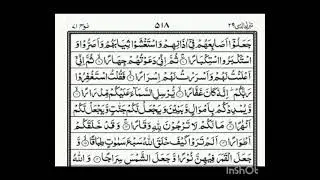 نوح ٧١ ٥١٨ تبٰرك الذی ٢٩
جَعَلُوْٓا اَصَابِعَهُمْ فِیْٓ اٰذَانِهِمْ وَاسْتَغْشَوْا ثِیَابَهُمْ وَاَصَرُّوْا وَ
اسْتَكْبَرُوا اسْتِكْبَارًا ۚ ثُمَّ اِنِّیْ دَعَوْتُهُمْ جِهَارًا ۙ ثُمَّ اِنِّیْٓ
اَعْلَنْتُ لَهُمْ وَاَسْرَرْتُ لَهُمْ اِسْرَارًا ۙ فَقُلْتُ اسْتَغْفِرُوْا
رَبَّكُمْ ؕ اِنَّهٗ كَانَ غَفَّارًا ۙ یُّرْسِلِ السَّمَآءَ عَلَیْكُمْ مِّدْرَارًا ۙ
وَّیُمْدِدْكُمْ بِاَمْوَالٍ وَّبَنِیْنَ وَیَجْعَلْ لَّكُمْ جَنّٰتٍ وَّیَجْعَلْ لَّكُمْ
اَنْهٰرًا ؕ مَا لَكُمْ لَا تَرْجُوْنَ لِلّٰهِ وَقَارًا ۚ وَقَدْ خَلَقَكُمْ
اَطْوَارًا ۙ اَلَمْ تَرَوْا كَیْفَ خَلَقَ اللّٰهُ سَبْعَ سَمٰوٰتٍ طِبَاقًا ۙ
وَّجَعَلَ الْقَمَرَ فِیْهِنَّ نُوْرًا وَّجَعَلَ الشَّمْسَ سِرَاجًا ۙ وَاللّٰهُ
InShOt